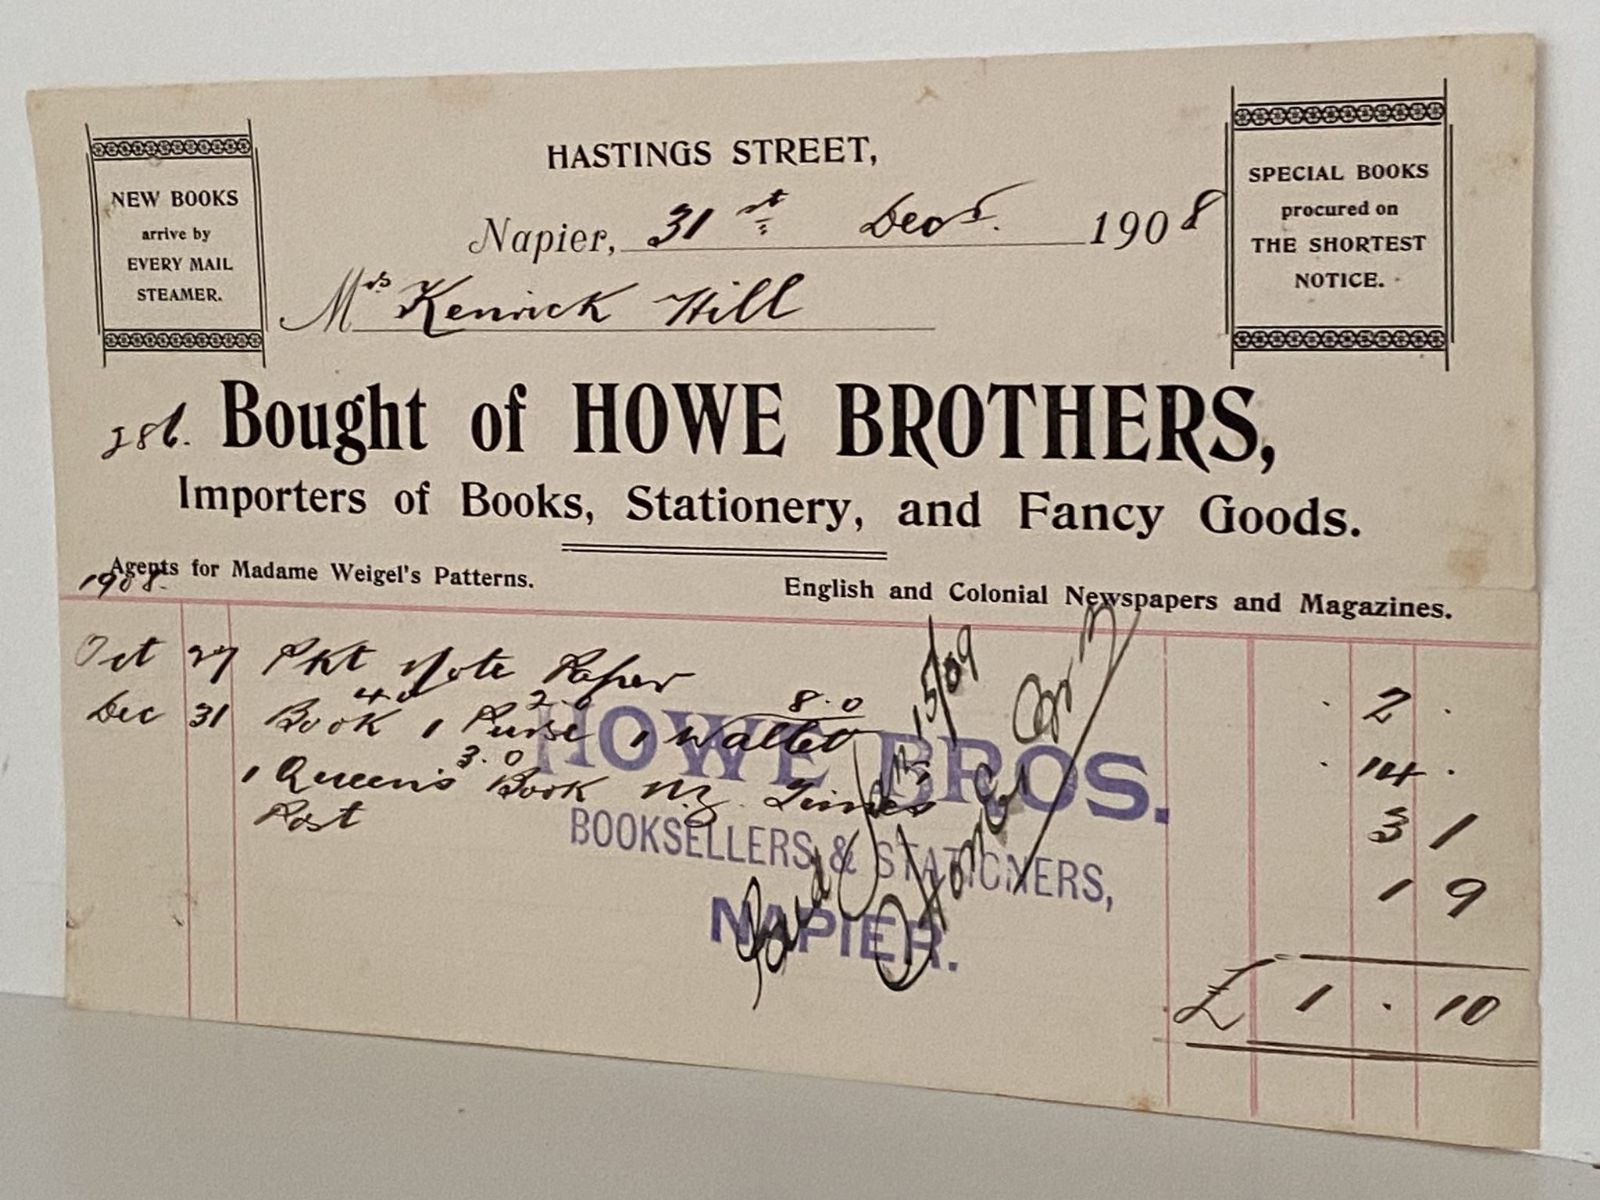 HASTINGS STREET,
Napier, 31st Decr. 1908
Mrs Kenrick Hill
NEW BOOKS
arrive by
EVERY MAIL
STEAMER.
SPECIAL BOOKS
procured on
THE SHORTEST
NOTICE.
Bought of HOWE BROTHERS,
Importers of Books, Stationery, and Fancy Goods.
Agents for Madame Weigel's Patterns.
English and Colonial Newspapers and Magazines.
1908.
Oct 27 Pkt Note Paper . 2 .
4.0 2.0 8.0
Dec 31 Book 1 Purse 1 Wallet . 14 .
3.0
1 Queen's Book N.Z. Times 3 1
Post 1 9
£ 1 . 10
HOWE BROS.
BOOKSELLERS & STATIONERS,
NAPIER.
Paid Jan 15/09